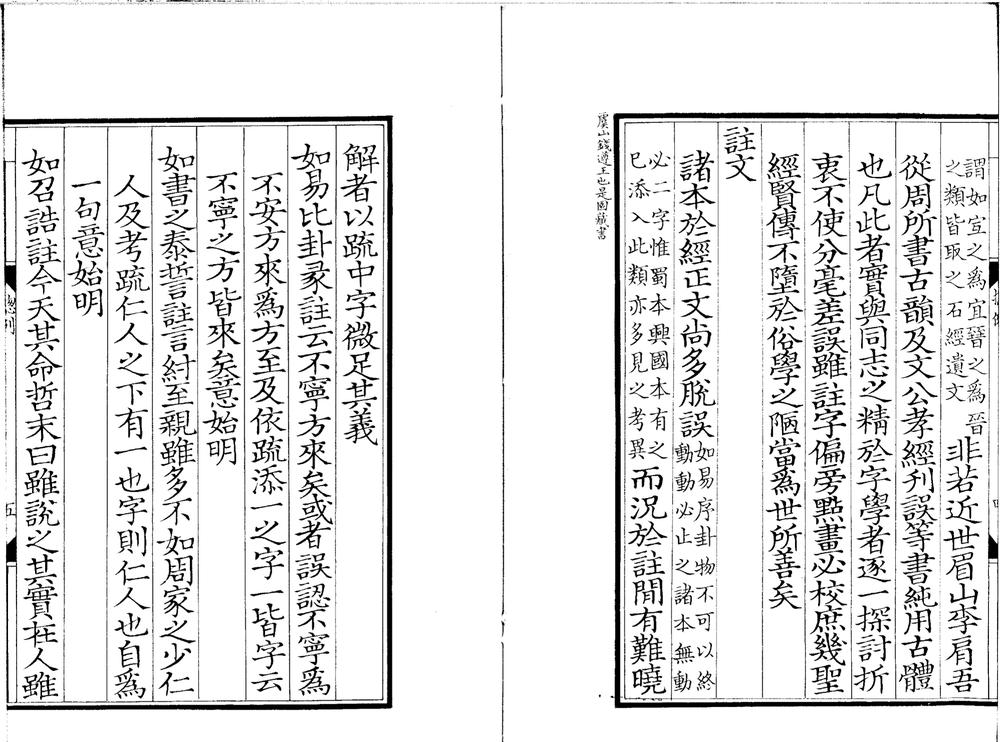 謂如宜之爲宜晉之爲晉
之類皆取之石經遺文
非若近世眉山李肩吾
從周所書古韻及文公孝經刊誤等書純用古體
也凡此者實與同志之精於字學者逐一探討折
衷不使分毫差誤雖註字偏旁點畫必校庶幾聖
經賢傳不墮於俗學之陋當爲世所善矣
註文
諸本於經正文尚多脫誤
如易序卦物不可以終
動動必止之諸本無動
必二字惟蜀本興國本有之
巳添入此類亦多見之考異
而況於註間有難曉
虞山錢遵王也是園藏書
解者以疏中字微足其義
如易比卦彖註云不寧方來矣或者誤認不寧爲
不安方來爲方至及依疏添一之字一皆字云
不寧之方皆來矣意始明
如書之泰誓註言紂至親雖多不如周家之少仁
人及考疏仁人之下有一也字則仁人也自爲
一句意始明
如召誥註今天其命哲末曰雖說之其實在人雖
五